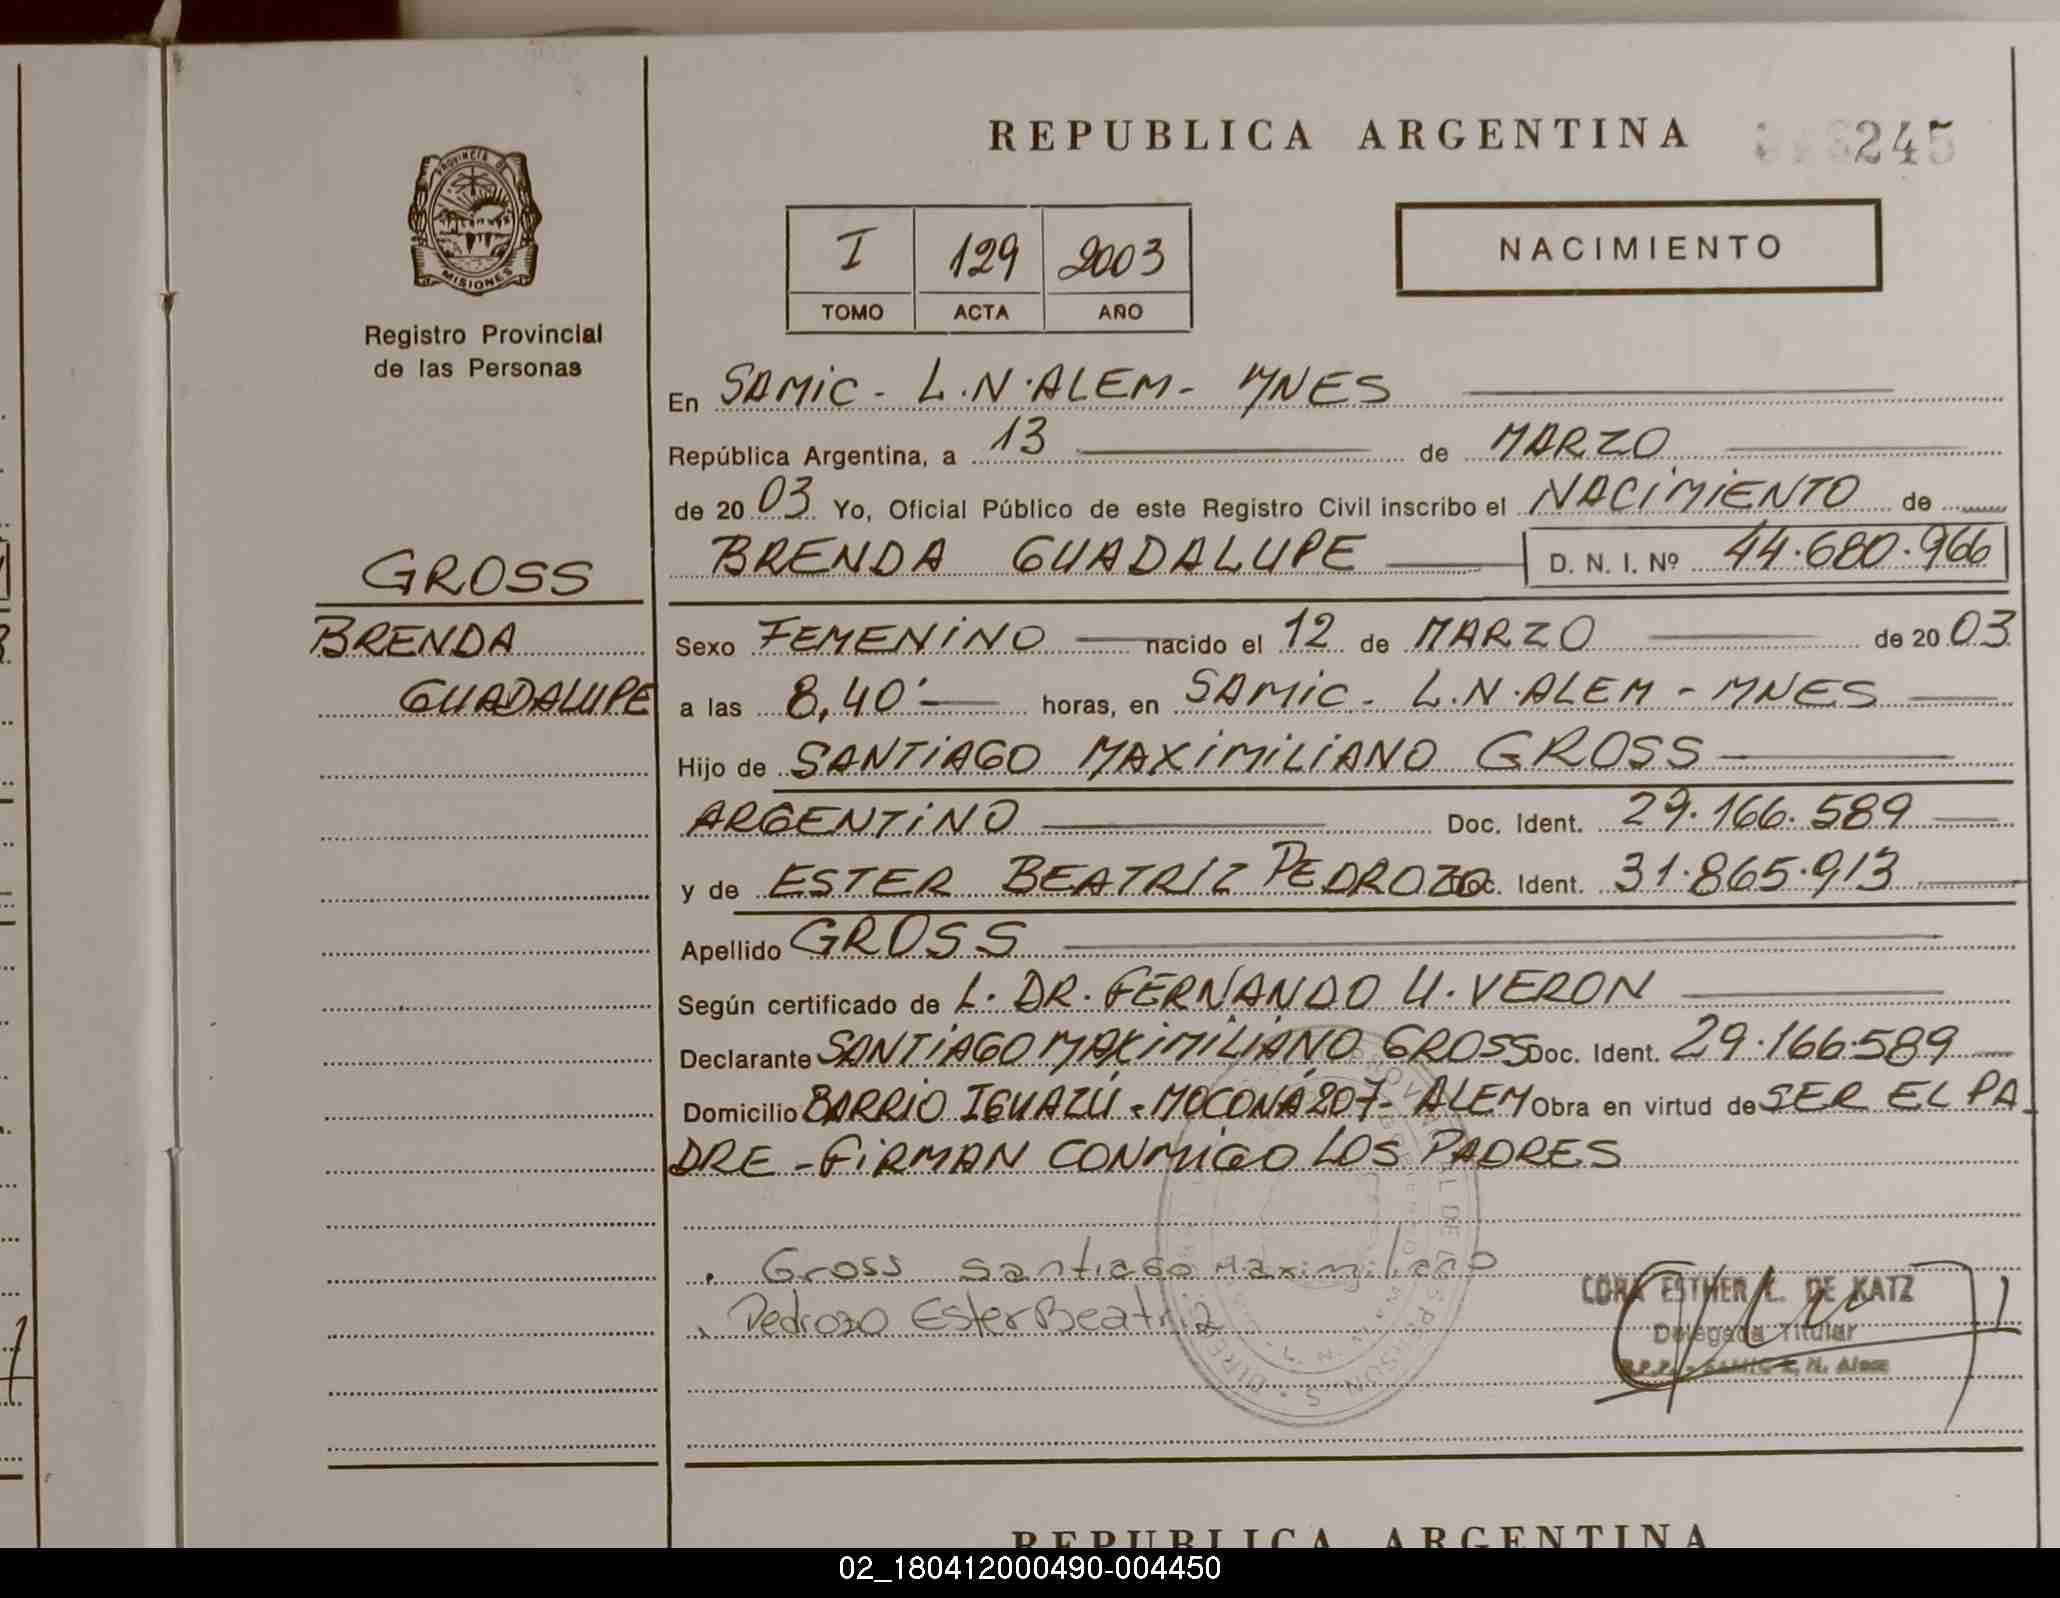 REPUBLICA ARGENTINA
245
PROVINCIA DE
MISIONES
Registro Provincial
de las Personas
I 129 2003
TOMO ACTA AÑO
NACIMIENTO
En SAMIC - L.N.ALEM - MNES
República Argentina, a 13 de MARZO
de 20 03 Yo, Oficial Público de este Registro Civil inscribo el NACIMIENTO de
BRENDA GUADALUPE D. N. I. Nº 44.680.966
GROSS
BRENDA
GUADALUPE
Sexo FEMENINO nacido el 12 de MARZO de 20 03
a las 8,40' horas, en SAMIC - L.N.ALEM - MNES
Hijo de SANTIAGO MAXIMILIANO GROSS
ARGENTINO Doc. Ident. 29.166.589
y de ESTER BEATRIZ PEDROZO Doc. Ident. 31.865.913
Apellido GROSS
Según certificado de L. DR. FERNANDO U. VERON
Declarante SANTIAGO MAXIMILIANO GROSS Doc. Ident. 29.166.589
Domicilio BARRIO IGUAZÚ - MOCONÁ 207 - ALEM Obra en virtud de SER EL PA
DRE - FIRMAN CONMIGO LOS PADRES
Gross Santiago Maximiliano
Pedrozo Ester Beatriz
CORA ESTHER L. DE KATZ
Delegada Titular
R.P.P. - SAMIC L. N. Alem
REPUBLICA ARGENTINA
02_180412000490-004450